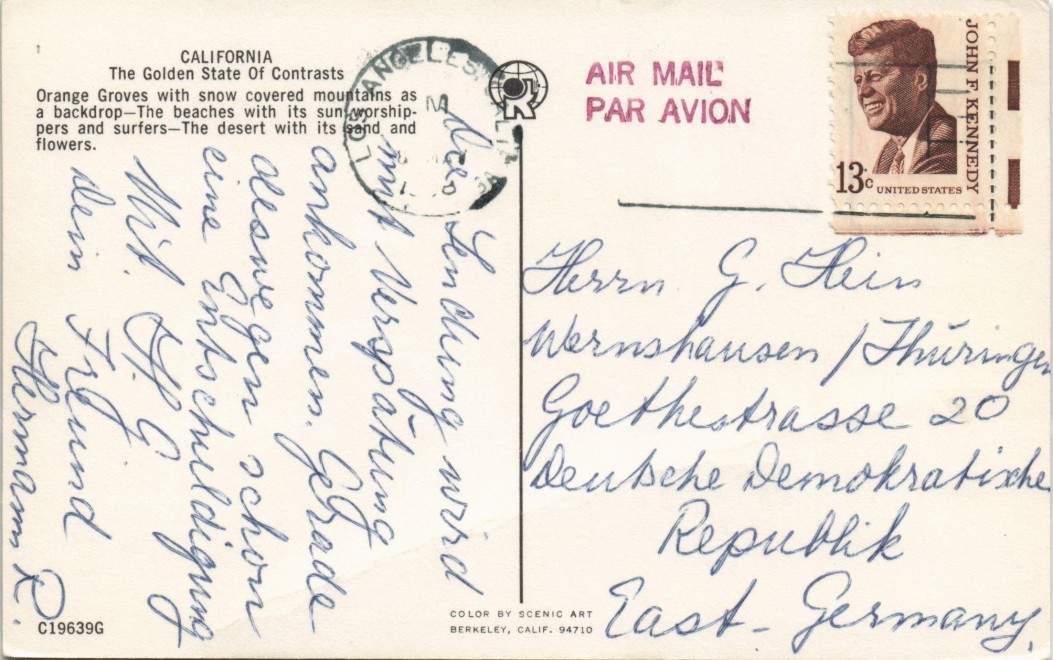 CALIFORNIA
The Golden State Of Contrasts
Orange Groves with snow covered mountains as
a backdrop—The beaches with its sun worship-
pers and surfers—The desert with its sand and
flowers.
die Sendung wird
mit Verspätung
ankommen. Gerade
deswegen schon
eine Entschuldigung
Mit H. G.
dein Freund
Hermann R.
C19639G
LOS ANGELES
COLOR BY SCENIC ART
BERKELEY, CALIF. 94710
AIR MAIL
PAR AVION
JOHN F. KENNEDY
13c UNITED STATES
Herrn G. Hein
Wernshausen / Thüringen
Goethestrasse 20
Deutsche Demokratische
Republik
East-Germany.